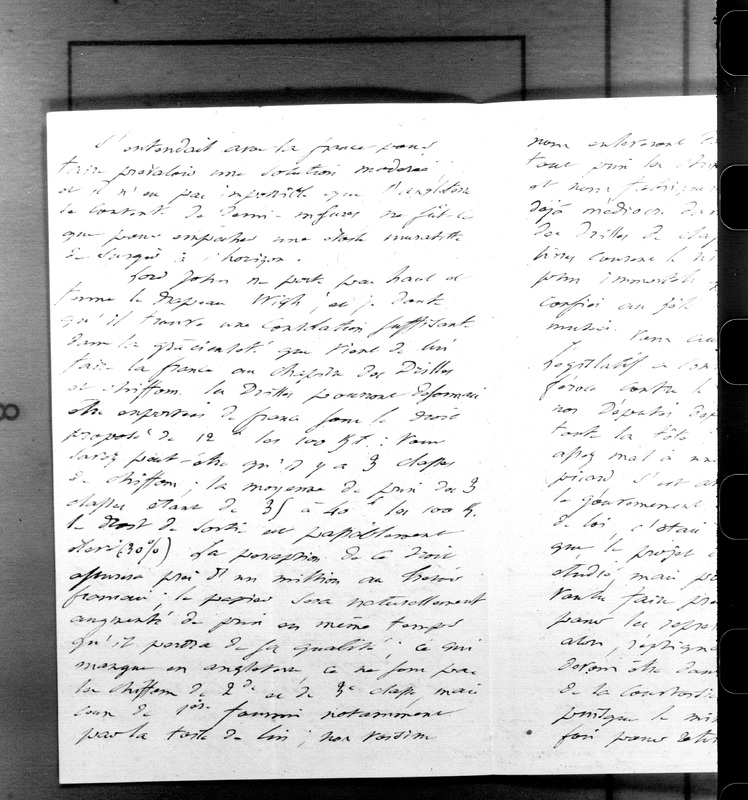 s'entendait avec la france pour
faire prévaloir une solution moderée,
et il n'est pas impossible que l'angleterre
se contente de demi-mesures ne fût-ce
que pour empêcher une étoile
de surgir à l'horizon.
Lord John ne porte pas haut et
ferme le drapeau Wigh, et je doute
qu'il trouve une consolation suffisante
dans la gracieuseté que vient de lui
faire la france au chapitre des Drilles
et chiffons. les Drilles pourront desormais
être exportées de france sous le droit
proposé de 12 f les 100 K. : Vous
savez peut-être qu'il y a 3 classes
de chiffons ; la moyenne de prix des 3
classes étant de 35 à 40 f les 100 K.
le droit de sortie est passablement
élevé (30%). La perception de ce droit
assurera près d'un million au trésor
français ; le papier sera naturellement
augmenté de prix en même temps
qu'il perdra de sa qualité ; ce qui
manque en angleterre, ce ne sont pas
les chiffons de 2de et de 3e classe, mais
ceux de 1ère fournis notamment
par la toile de lin ; nos voisins
nous enleveront
tout prix les
et nous fabriquer
déjà médiocre dans
des Drilles de
livres courent le
plus immortels
confiés au
musée. Vous
Legislatif a
féroce contre le
nos Députés
toute la tête
assez mal à
picard s'est
le gouvernement
de loi, c'était
que le projet
étudié, mais
Voulu faire
pour les
alors,
devoir être dans
de la
puisque le
fois pour